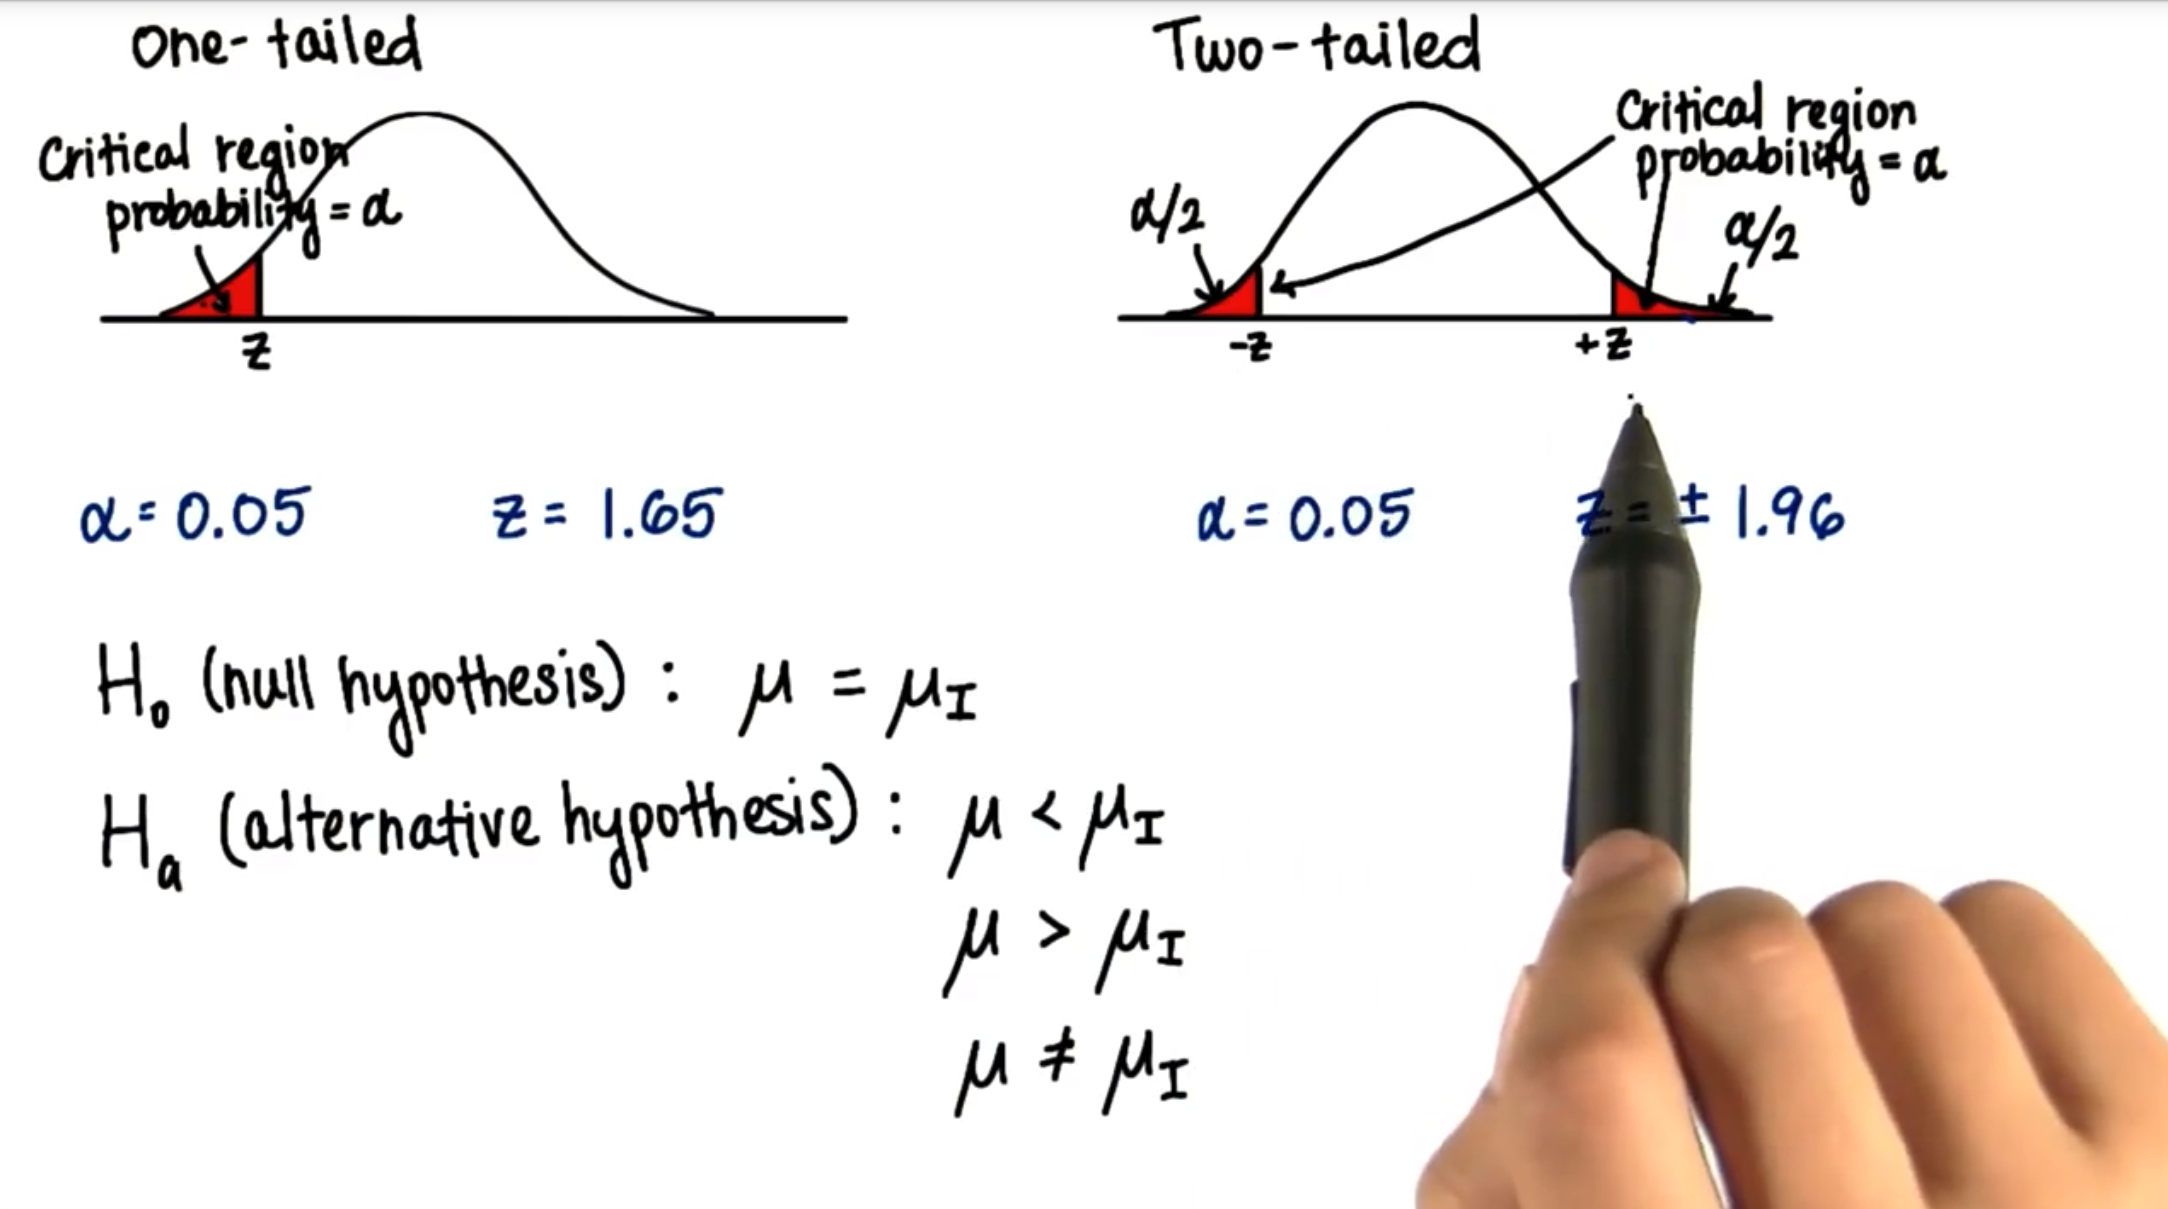 One-tailed
Critical region
probability = α
Z
α = 0.05 z = 1.65
Two-tailed
Critical region
probability = α
α/2
α/2
-z
+z
α = 0.05 z = ± 1.96
H₀ (null hypothesis) : μ = μ_I
Hₐ (alternative hypothesis) : μ < μ_I
μ > μ_I
μ ≠ μ_I